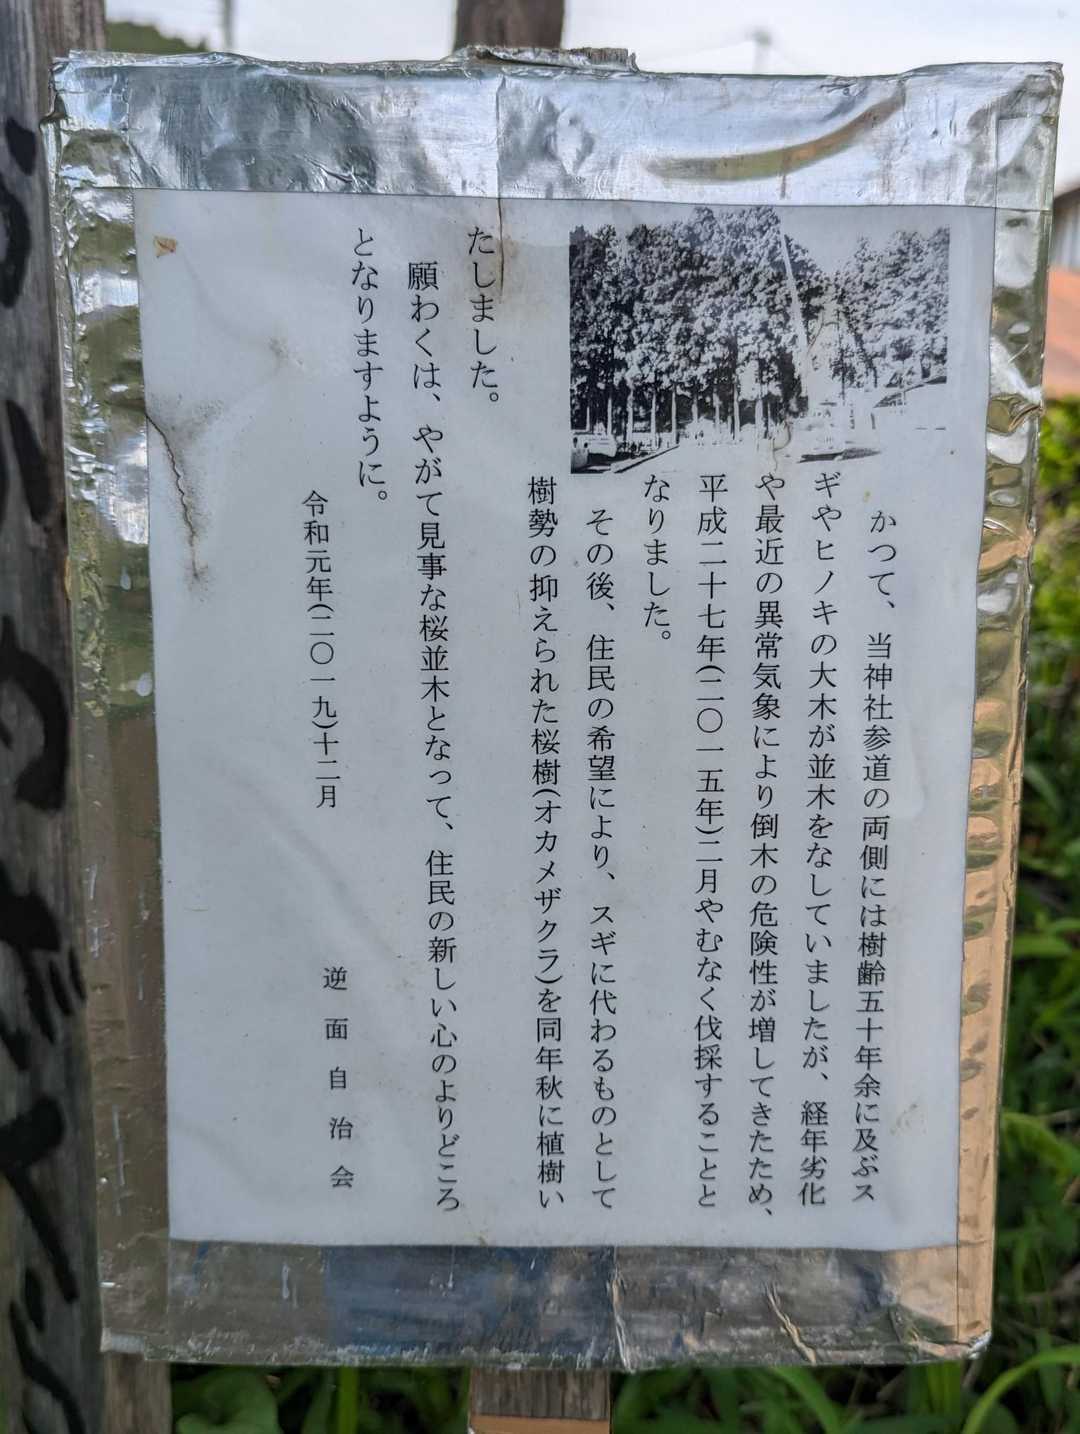 かつて、当神社参道の両側には樹齢五十年余に及ぶス
ギやヒノキの大木が並木をなしていましたが、経年劣化
や最近の異常気象により倒木の危険性が増してきたため、
平成二十七年(二〇一五年)二月やむなく伐採することと
なりました。
その後、住民の希望により、スギに代わるものとして
樹勢の抑えられた桜樹(オカメザクラ)を同年秋に植樹い
たしました。
願わくは、やがて見事な桜並木となって、住民の新しい心のよりどころ
となりますように。
令和元年(二〇一九)十二月
逆面自治会